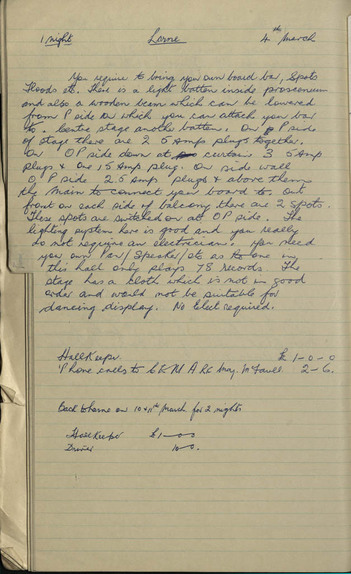 1 night Larne 4th March
You require to bring your own board bar, Spots
Floods etc. There is a light batten inside proscenium
and also a wooden beam which can be lowered
from P side on which you can attach your bar
to. Centre stage another batten. On P side
of stage there are 2 5 Amp plugs together.
On OP side down at curtain 3 5 Amp
plugs & one 15 Amp plug. On side wall
OP side 2 5 Amp plugs & above them
the Main to connect your board to. Out
front on each side of balcony there are 2 spots.
These spots are switched on at OP side. The
lighting system here is good and you really
do not require an electrician. You need
your own Pan/Speaker/etc as the one in
this hall only plays 78 records. The
stage has a cloth which is not in good
order and would not be suitable for
dancing display. No Elect required.
Hall Keeper £ 1-0-0
Phone calls to C E M A Re May McFaull 2-6.
Back to Larne on 10 & 11th March for 2 nights
Hall Keeper £1-0-0
Driver 10-0.